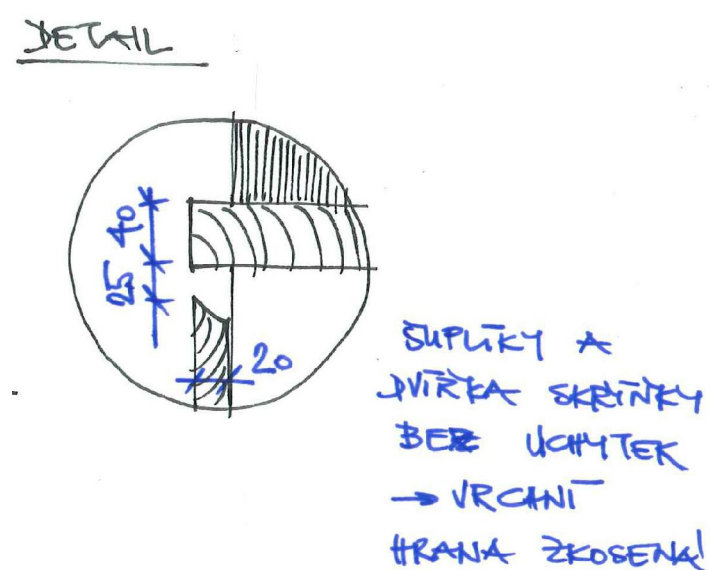 DETAIL
40
25
20
ŠUPLÍKY A
DVÍŘKA SKŘÍŇKY
BEZ ÚCHYTEK
→ VRCHNÍ
HRANA ZKOSENÁ!